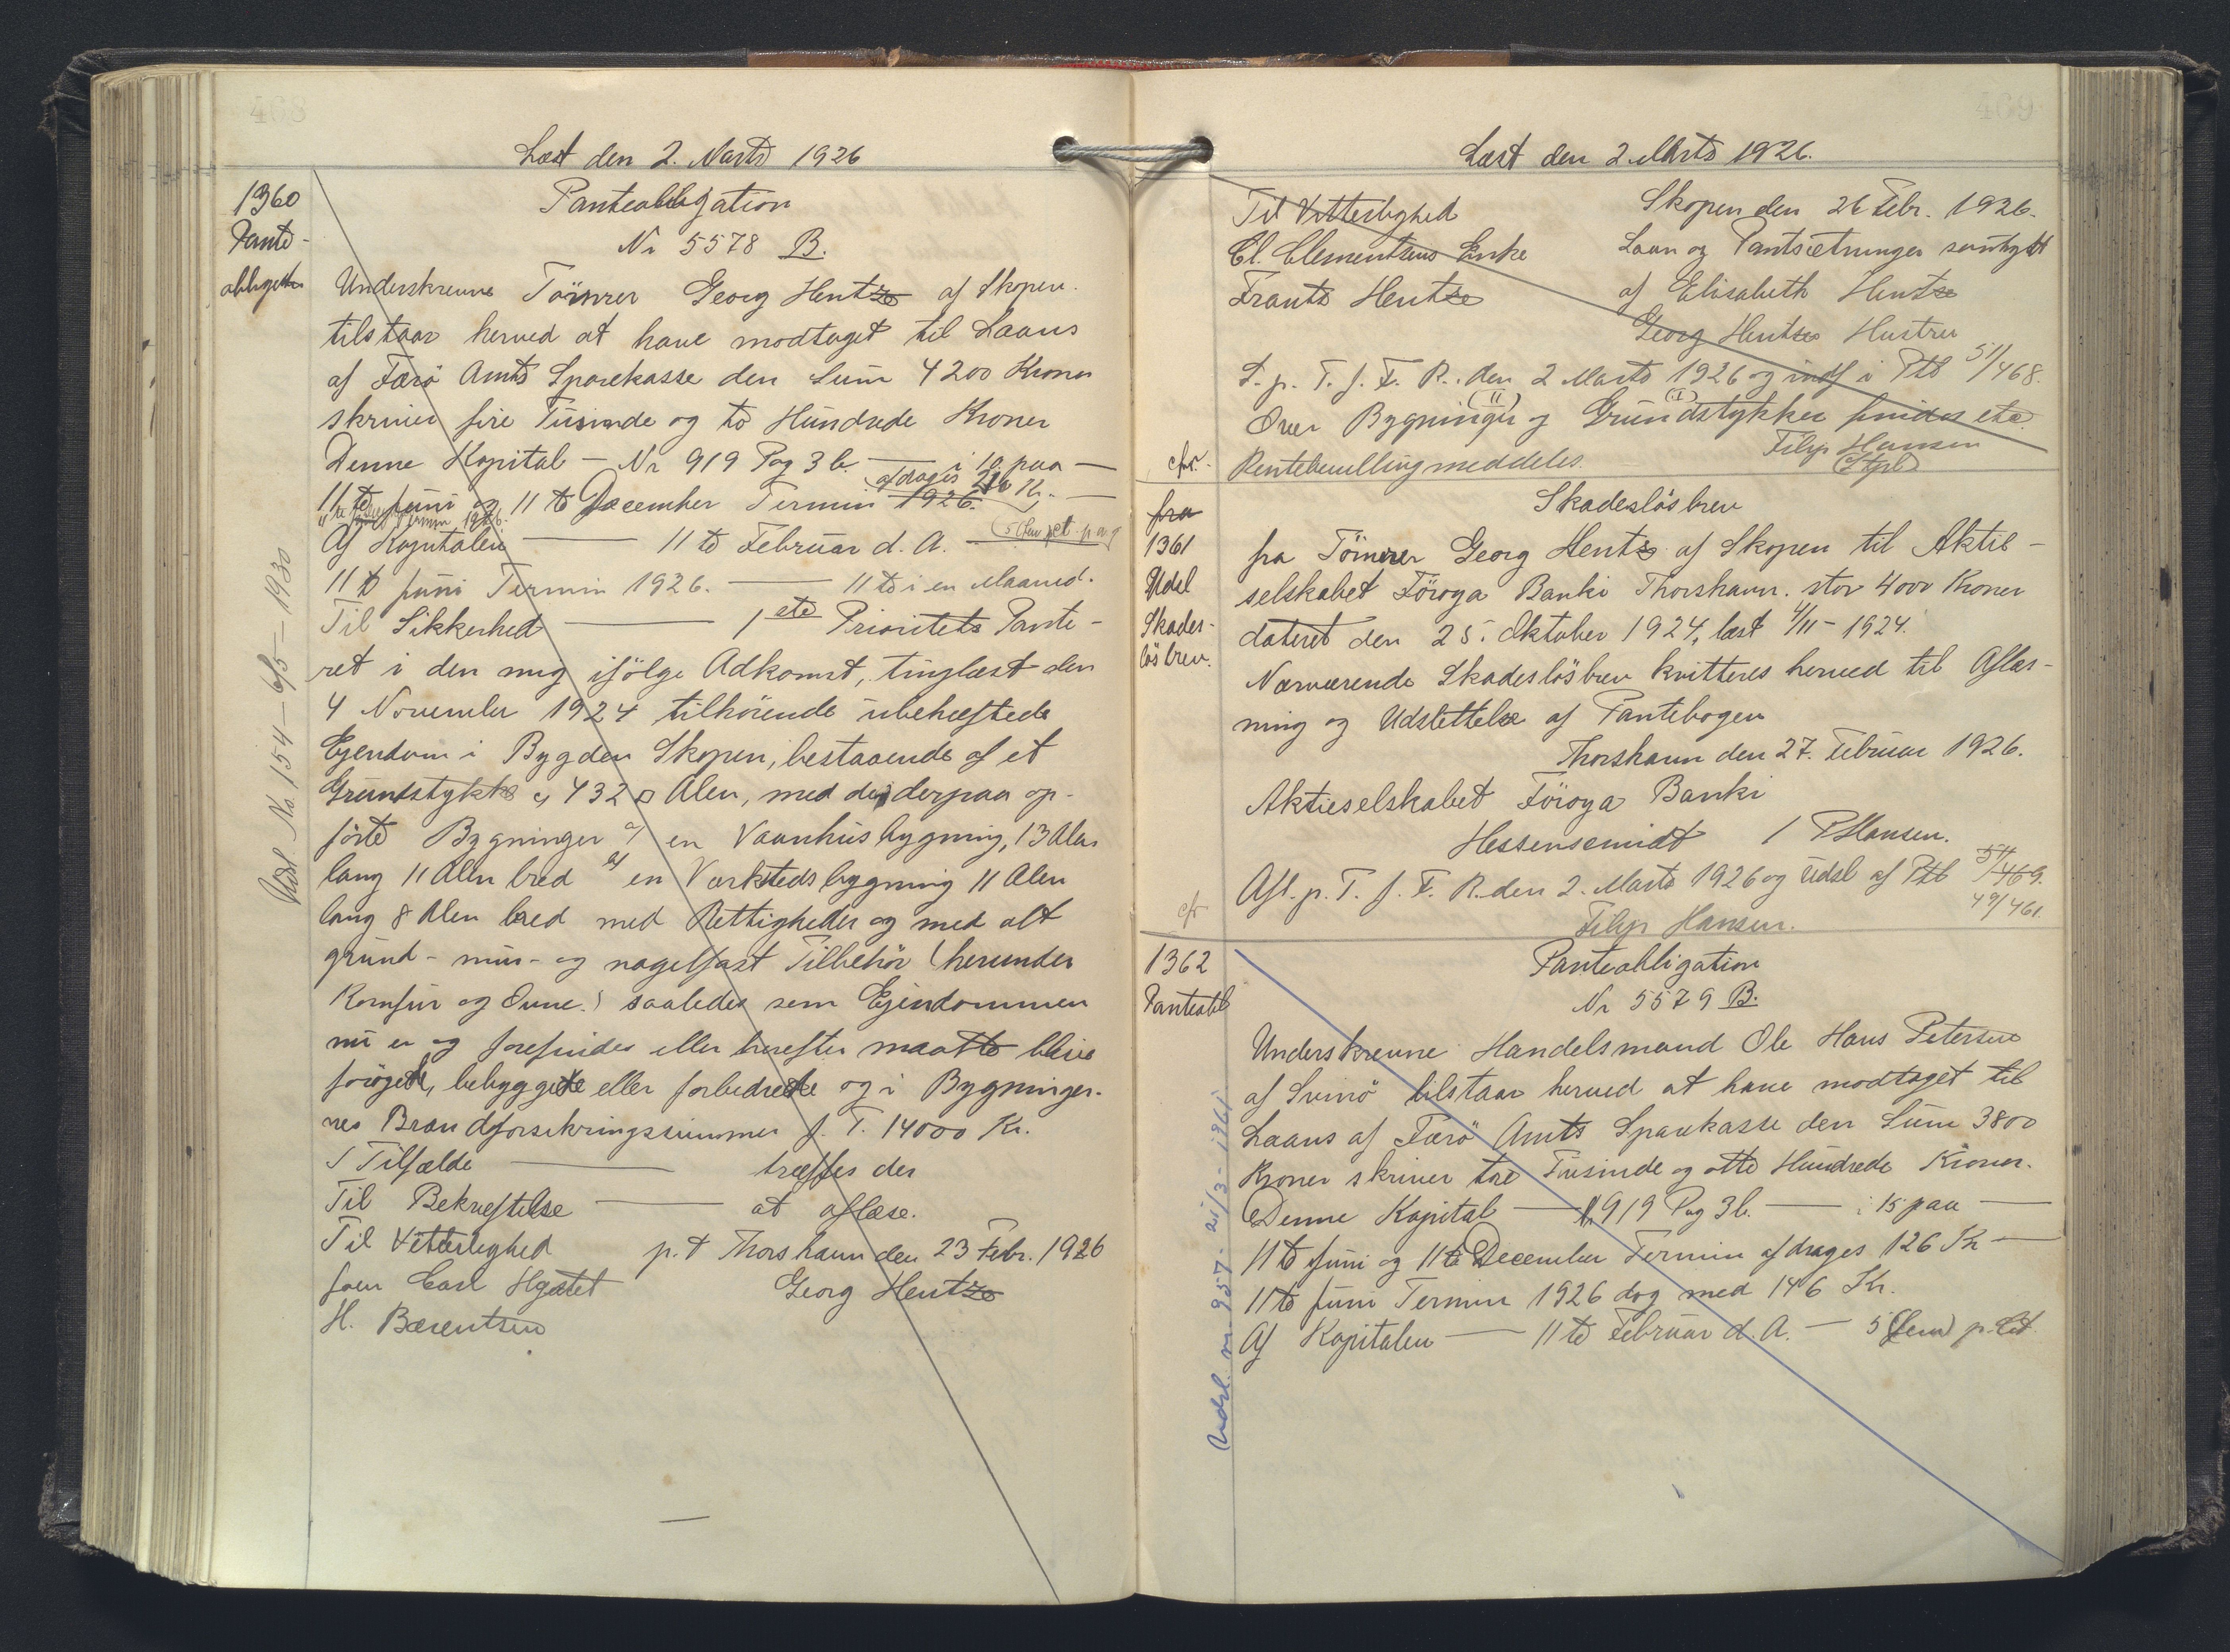 468
Læst den 2. Marts 1926
1360
Pante-
obligation
Panteobligation
Nr 5578 B.
Underskrevne Tömrer Georg Hentze af Skopen
tilstaar herved at have modtaget til Laans
af Færö Amts Sparekasse den Sum 4200 Kroner
skriver fire Tusinde og to Hundrede Kroner
Denne Kapital — Nr 919 Pag 3 b. — i 10 paa —
11te Juni og 11te December Termin 1926. afdrages 210 Kr. —
11te Juni Termin 1926.
Af Kapitalen — 11te Februar d. A. — 5 (fem) pct. p. a.
11te Juni Termin 1926. — 11te i en Maaned.
Til Sikkerhed — 1ste Prioritets Pante-
ret i den mig ifölge Adkomst, tinglæst den
4 November 1924 tilhörende ubehæftede
Ejendom i Bygden Skopen, bestaaende af et
Grundstykke c, 432 □ Alen, med de derpaa op-
förte Bygninger a/ en Vaanhusbygning, 13 Alen
lang 11 Alen bred b/ en Værkstedsbygning 11 Alen
lang 8 Alen bred med Rettigheder og med alt
grund- mur- og nagelfast Tilbehör (herunder
Komfur og Ovne.) saaledes som Ejendommen
nu er og forefindes eller herefter maatte blive
forøgede, bebyggede eller forbedrede og i Bygninger-
nes Brandforsikringssummer p. T. 14000 Kr.
I Tilfælde — træffes der
Til Bekræftelse — at aflæse.
Til Vitterlighed p. t Thorshavn den 23 Febr. 1926
Georg Hentze
H. Bærentsen
Udsl. No 154 – 6/5 – 1930
469
Læst den 2 Marts 1926.
Til Vitterlighed Skopen den 26 Febr. 1926.
Cl. Clementsens Enke Laan og Pantsætninger samtykt
Frants Hentze af Elisabeth Hentze
Georg Hentzes Hustru
L. p. T. f. F. R. den 2 Marts 1926 og indf i Ptb 51/468.
Over Bygninger (II) og Grundstykker (I) findes etc.
cfr. Rentebevilling meddeles. Filip Hansen
(Stpl)
fra
1361
Udsl
Skades-
lösbrev.
Skadeslösbrev
fra Tömrer Georg Hentze af Skopen til Aktie-
selskabet Föroya Banki Thorshavn. stor 4000 Kroner
dateret den 25. Oktober 1924, læst 4/11 – 1924.
Nærværende Skadeslösbrev kvitteres herved til Aflæs-
ning og Udslettelse af Pantebogen
Thorshavn den 27. Februar 1926.
Aktieselskabet Föroya Banki
/ P Hansen.
Afl. p. T. f. F. R. den 2. Marts 1926 og Udsl af Ptb 51/469.
49/461.
cfr Filip Hansen.
1362
Panteobl
Panteobligation
Nr 5579 B.
Underskrevne Handelsmand Ole Hans Petersen
af Svinö tilstaar herved at have modtaget til
Laans af Færö Amts Sparekasse den Sum 3800
Kroner skriver tre Tusinde og otte Hundrede Kroner.
Denne Kapital — N 919 Pag 3 b. — i 15 paa —
11te Juni og 11te December Termin afdrages 126 Kr —
11te Juni Termin 1926 dog med 146 Kr.
Af Kapitalen — 11te Februar d. A. — 5 (fem) p. Ct
Udsl. nr. 957 – 21/3 – 1961